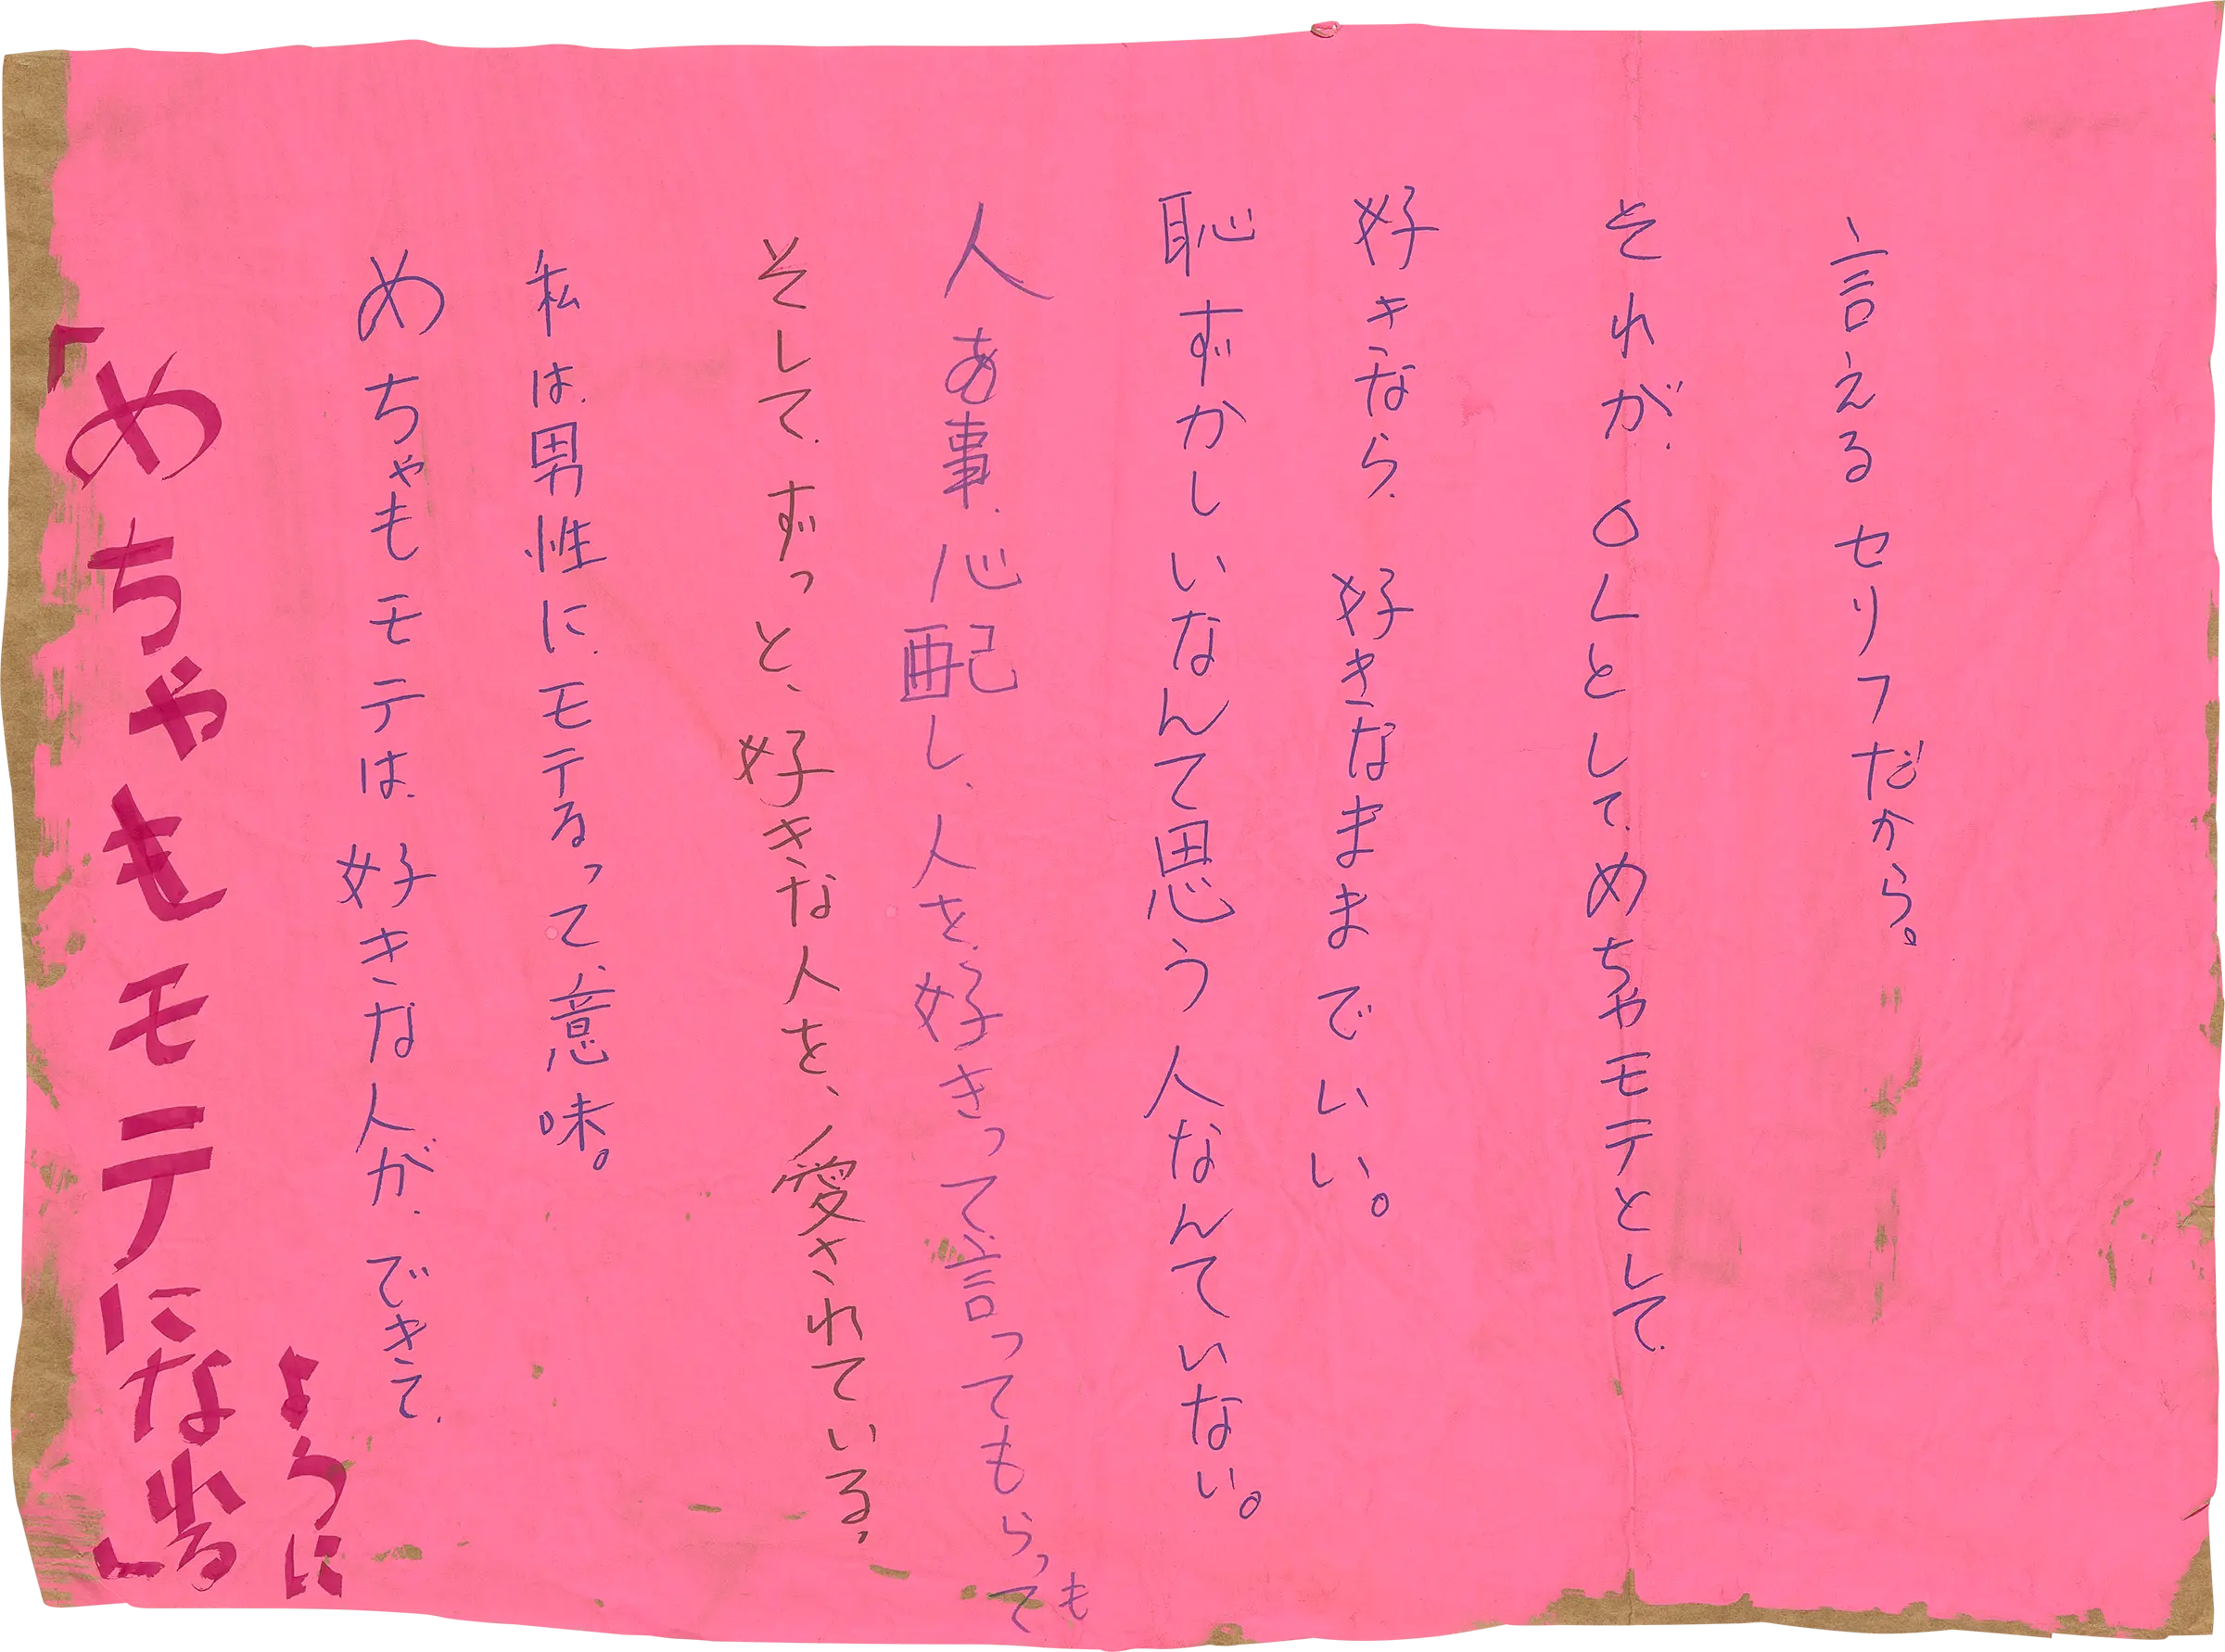 「めちゃもモテになれる」
ように
めちゃもモテは、好きな人が、できて、
私は、男性に、モテるって、意味。
そして、ずっと、好きな人を、愛されている。
人の事、心配し、人を、好きって、言ってもらっても
恥ずかしいなんて思う人なんていない。
好きなら、好きなままでいい。
それが、OLとして、めちゃモテとして、
言えるセリフだから。